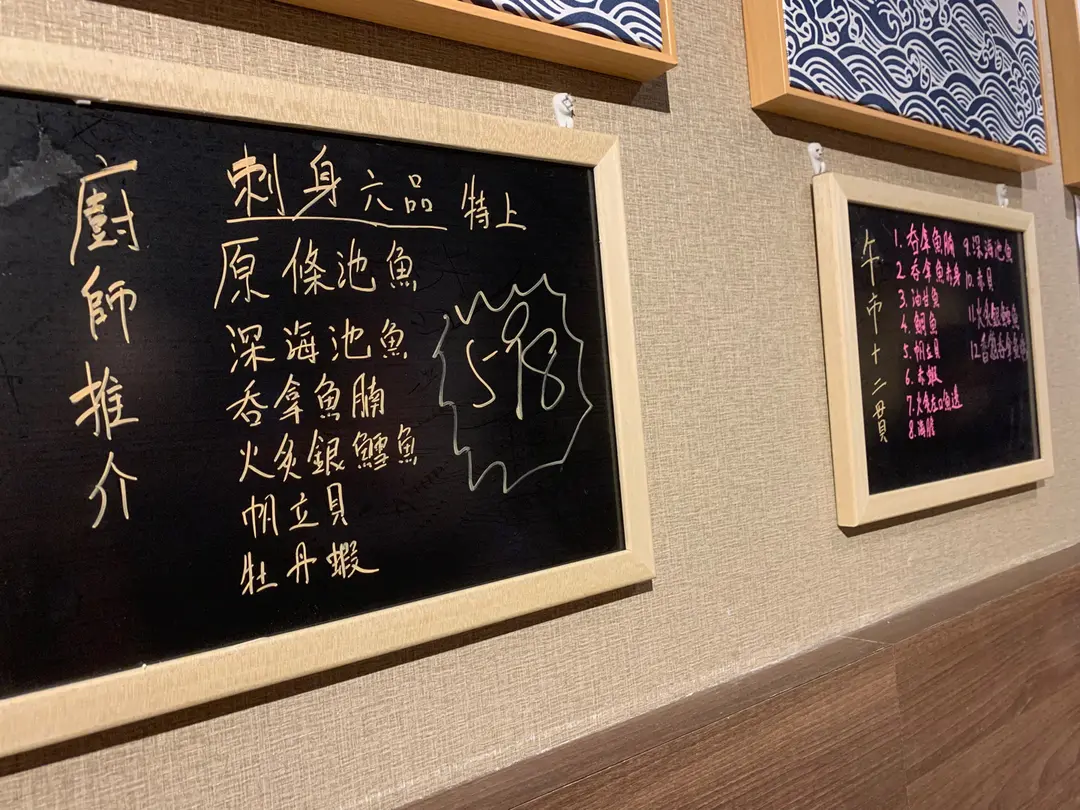 廚師推介
刺身六品 特上
原條池魚
深海池魚
吞拿魚腩
火炙銀鱈魚
帆立貝
牡丹蝦
598
午市十二貫
1. 吞拿魚腩
2. 吞拿魚赤身
3. 油甘魚
4. 鯛魚
5. 帆立貝
6. 赤蝦
7. 火炙左口魚邊
8. 海膽
9. 深海池魚
10. 赤貝
11. 火炙銀鱈魚
12. 香蔥吞拿魚